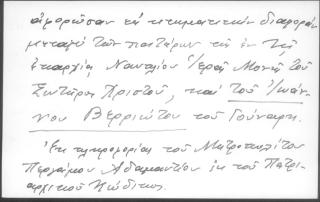 ἀφορῶσαν εἰς κτηματικὴν διαφορὰν
μεταξὺ τῶν πατέρων τῆς ἐν τῇ
ἐπαρχίᾳ Ναυπλίου Ἱερᾶς Μονῆς τοῦ
Σωτῆρος Χριστοῦ, καὶ τοῦ Ἰωάν-
νου Βερριώτου τοῦ Γούναρη.
Ἐκ πληροφορίας τοῦ Μητροπολίτου
Περγάμου Ἀδαμαντίου ἐκ τοῦ Πατρι-
αρχικοῦ Κώδικος.